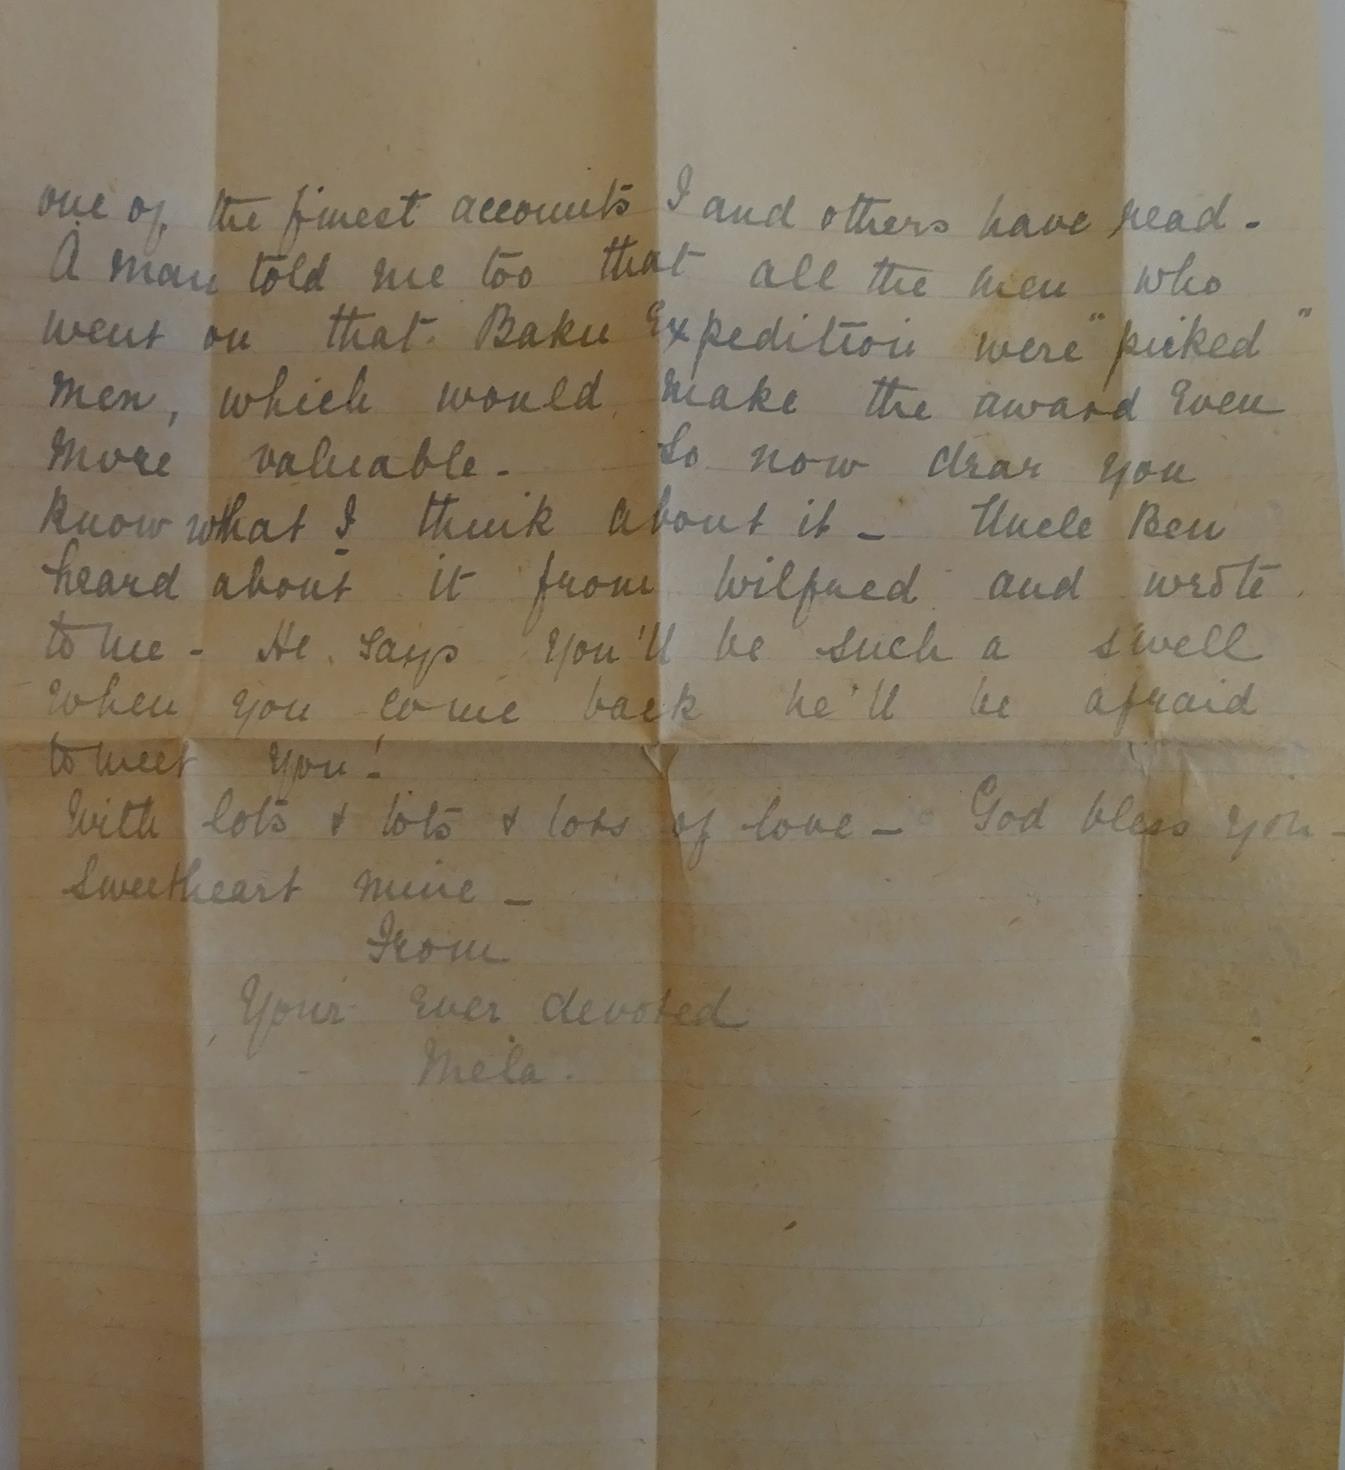 one of the finest accounts I and others have read -
A man told me too that all the men who
went on that Baku Expedition were "picked"
men, which would make the award even
more valuable - So now dear you
know what I think about it - Uncle Ben
heard about it from Wilfred and wrote
to me - He says you'll be such a swell
when you come back he'll be afraid
to meet you!
With lots & lots & lots of love - God bless you -
Sweetheart mine -
From
Your ever devoted
Mela.